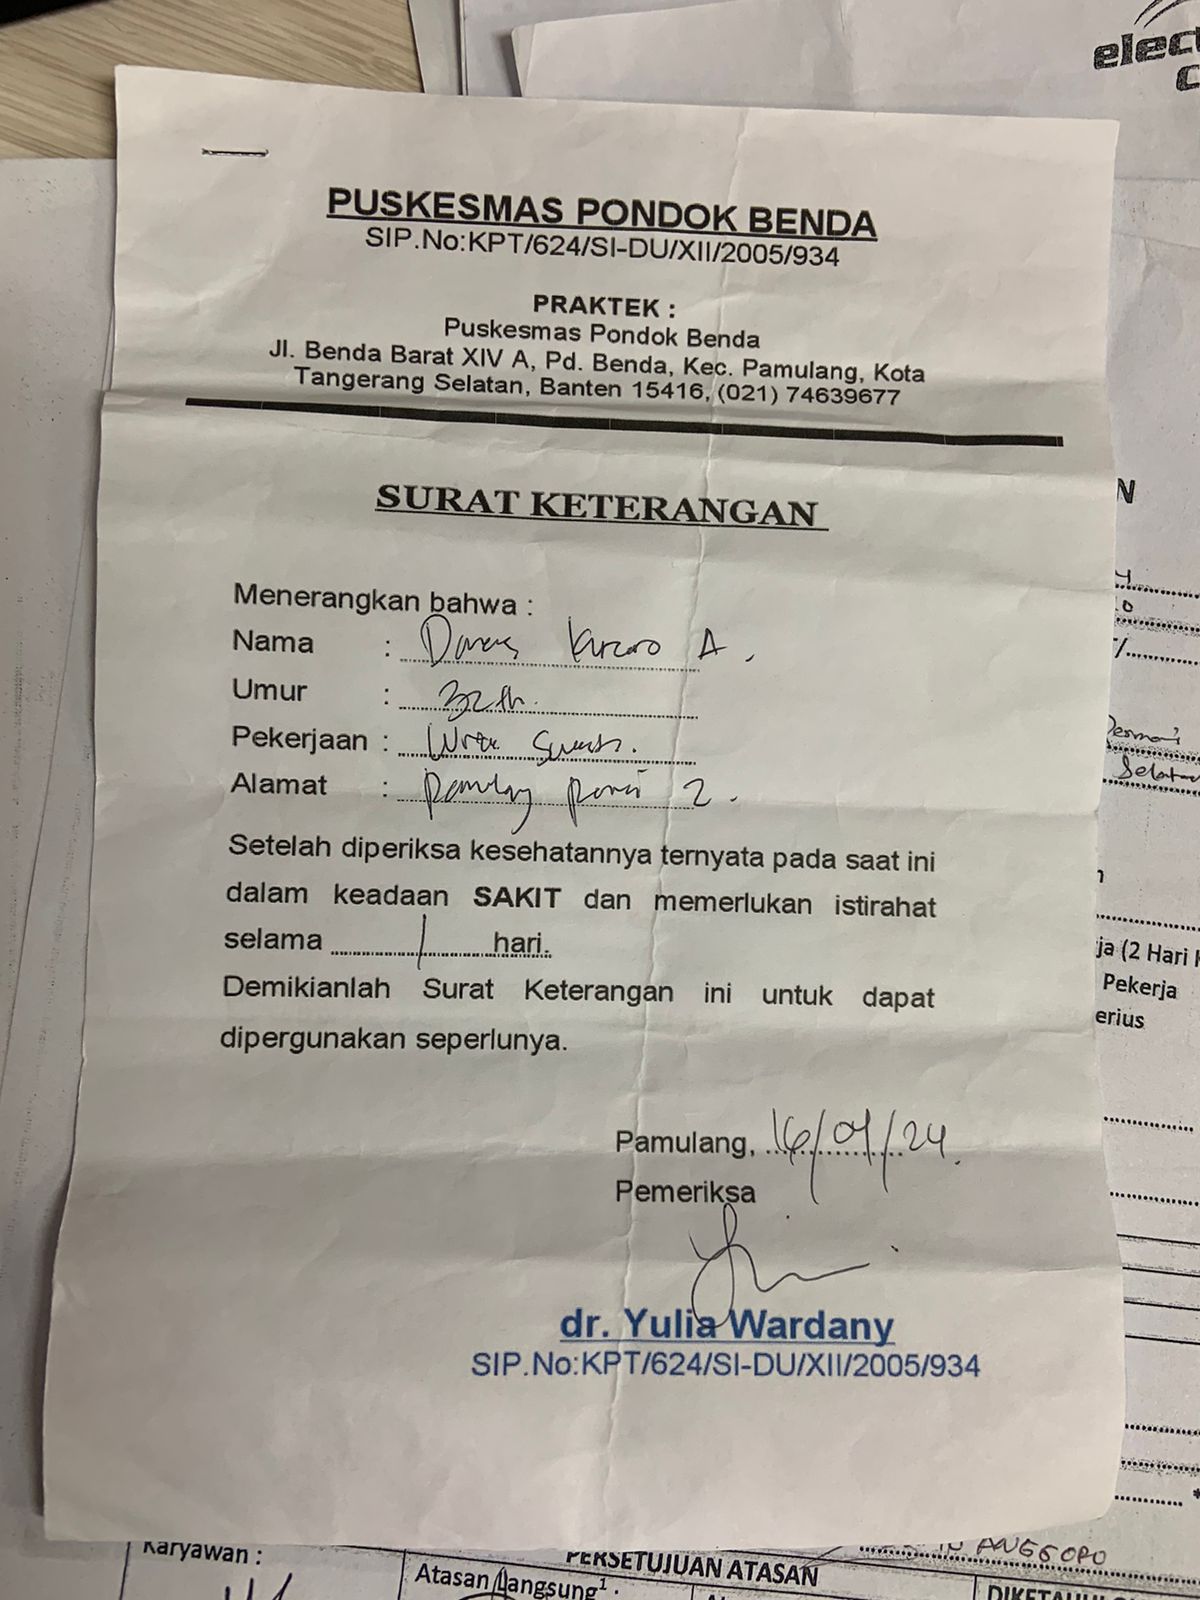 elect
C
PUSKESMAS PONDOK BENDA
SIP.No:KPT/624/SI-DU/XII/2005/934
PRAKTEK :
Puskesmas Pondok Benda
Jl. Benda Barat XIV A, Pd. Benda, Kec. Pamulang, Kota
Tangerang Selatan, Banten 15416, (021) 74639677
SURAT KETERANGAN
N
Menerangkan bahwa :
Nama : A.
Umur : 32 th.
Pekerjaan :
Alamat : 2.
Selatan
Setelah diperiksa kesehatannya ternyata pada saat ini
dalam keadaan SAKIT dan memerlukan istirahat
selama 1 hari.
Demikianlah Surat Keterangan ini untuk dapat
dipergunakan seperlunya.
ja (2 Hari
Pekerja
erius
Pamulang, 16/01/24.
Pemeriksa
dr. Yulia Wardany
SIP.No:KPT/624/SI-DU/XII/2005/934
ANGGORO
Karyawan :
PERSETUJUAN ATASAN
Atasan Langsung¹
DIKETAHUI